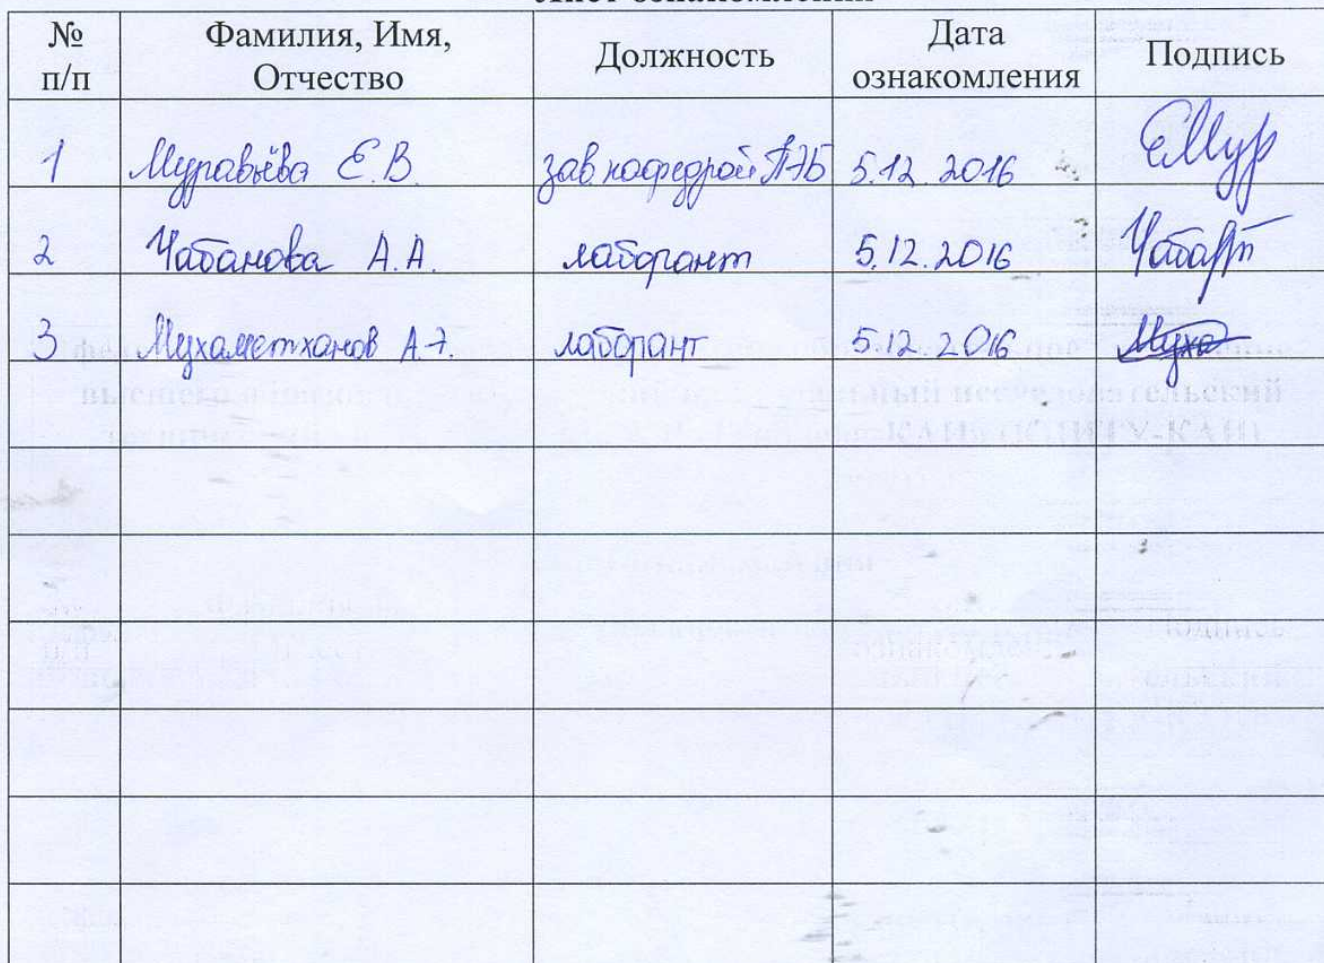 Лист ознакомления
№ п/п Фамилия, Имя, Отчество Должность Дата ознакомления Подпись
1 Муравьёва Е.В. зав кафедрой ПЭБ 5.12.2016 ЕМур
2 Чабанова А.А. лаборант 5.12.2016
3 Мухаметханов А.Э. лаборант 5.12.2016 Муха